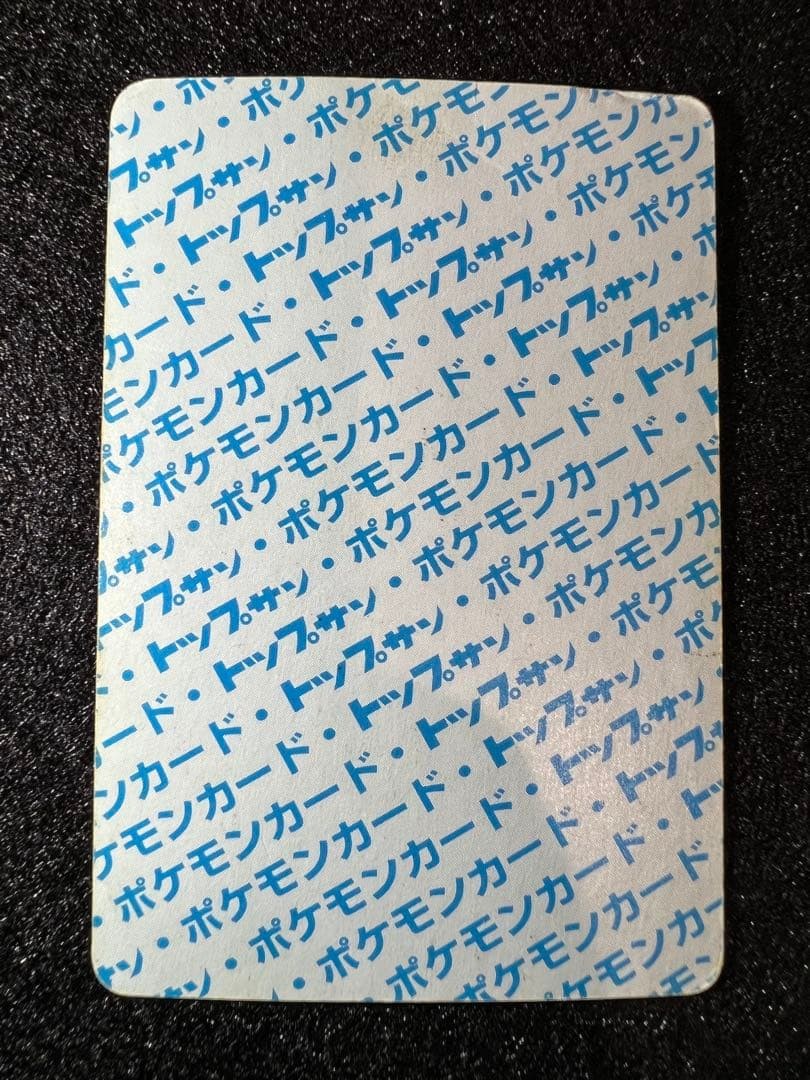 ン・ポ
プサン・ポケ
トップサン・ポケモ
ド・トップサン・ポケモン
カード・トップサン・ポケモンカ
モンカード・トップサン・ポケモンカ
ポケモンカード・トップサン・ポケモン
・ポケモンカード・トップサン・ポケ
ン・ポケモンカード・トップサン・ポ
プサン・ポケモンカード・トップサン
トップサン・ポケモンカード・トップ
・トップサン・ポケモンカード・ト
ード・トップサン・ポケモンカード
ンカード・トップサン・ポケモンカ
ケモンカード・トップサン・ポケモン
・ポケモンカード・トップサン・ポ
サン・ポケモンカード・トップサン
サン・ポケモンカード・トップサ
・ポケモンカード・トッ
ポケモンカード
ポケモンカ